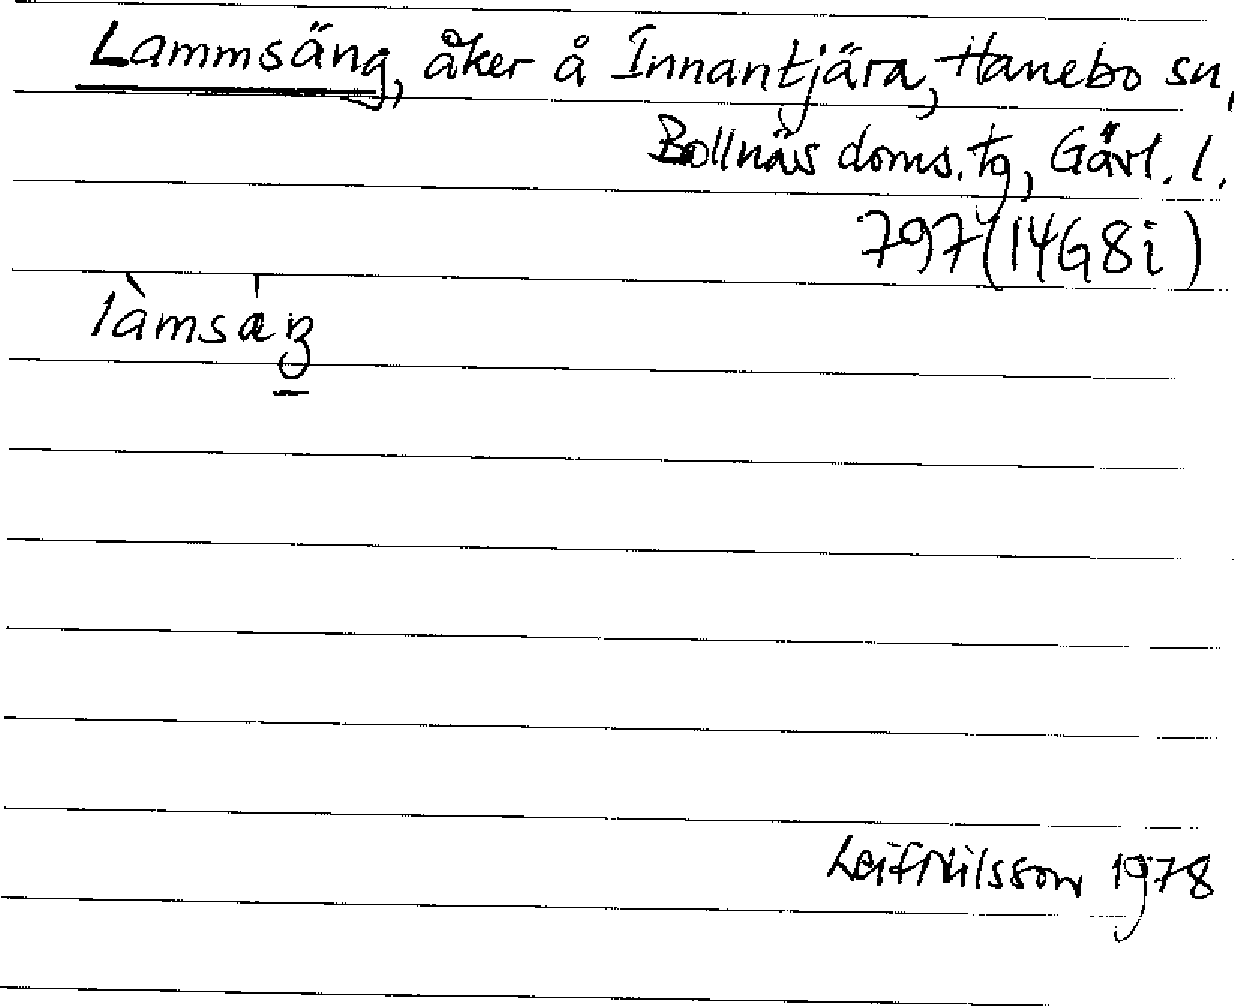 Lammsäng, åker å Innantjära, Hanebo sn,
Bollnäs doms. tg, Gävl. l.
797 (14G8i)
làmsæŋ
Leif Nilsson 1978